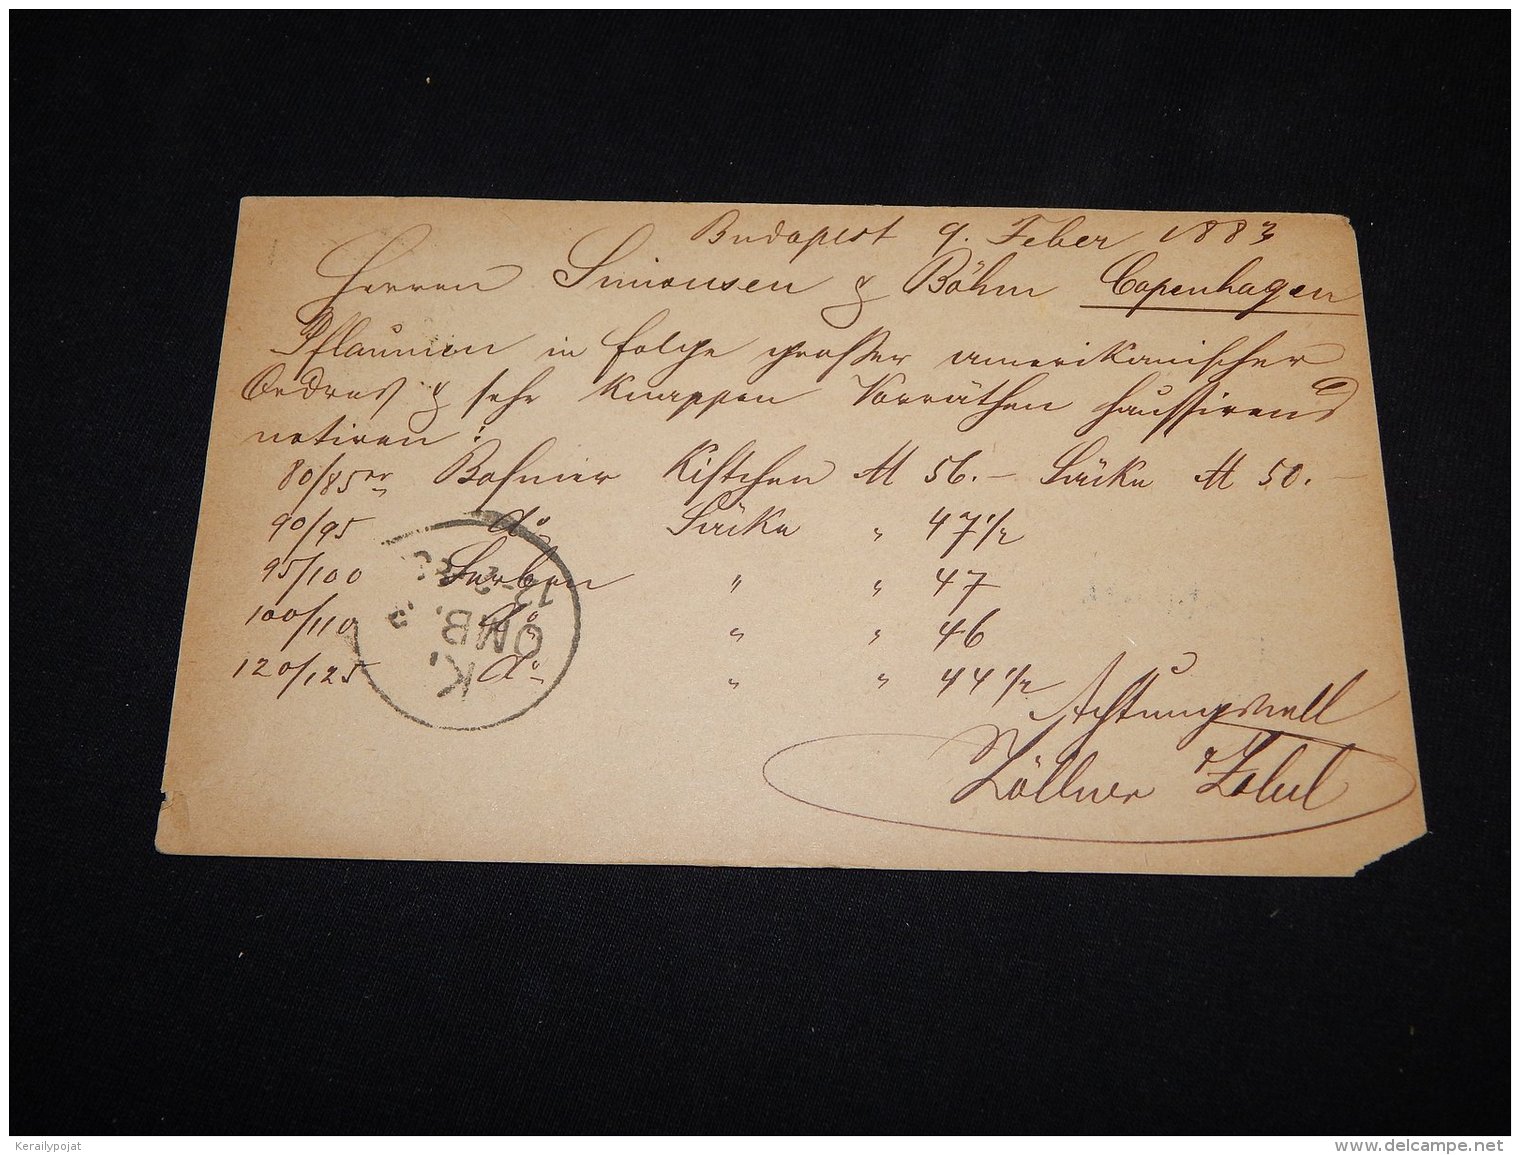 Budapest 9. Feber 1883
Herren Simonsen & Böhm Copenhagen
Pflaumen in folge großer amerikanischer
Ordres & sehr knappen Vorräthen haussirend
notiren:
80/85er Bosnier Kistchen M 56.– Säcke M 50.–
90/95 do Säcke " 47 1/2
95/100 Serben " " 47
100/110 do " " 46
120/125 do " " 44 1/2
Achtungsvoll
Zöllner &
K.
OMB. 3
13-2
Kerailypojat
www.delcampe.net